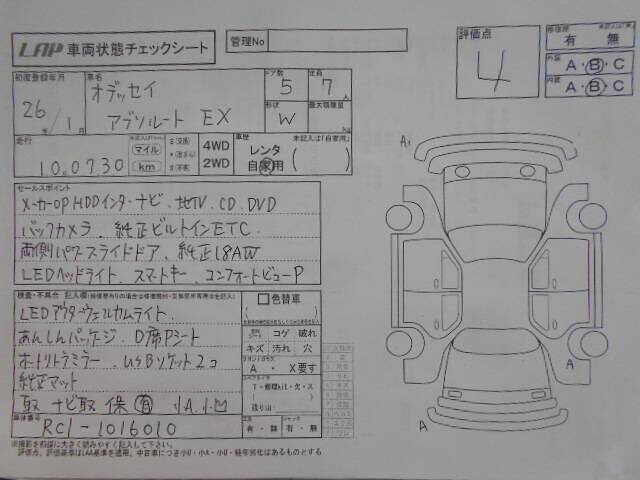 LAP 車両状態チェックシート
管理No
評価点
4
修復歴
有 ・ 無
外装
A・B・C
内装
A・B・C
初度登録年月
26年/1月
車名
オデッセイ
アブソルート EX
ドア数
5
定員
7人
形状
W
最大積載量
kg
走行
10.0730
マイル
km
4WD
2WD
車歴
未記入は「自家用」
レンタ
自家用
( )
セールスポイント
メーカーOP HDDインターナビ、地TV、CD、DVD
バックカメラ、純正ビルトインETC
両側パワースライドドア、純正18AW
LEDヘッドライト、スマートキー、コンフォートビューP
LEDアウターウェルカムライト、
あんしんパッケージ、D席Pシート
オートリトラミラー、USBソケット2コ
純正マット
取 ナビ取 保 有 小A.小凹
色替車
( )
コゲ 破れ
キズ 汚れ 穴
フロントガラス
A ・ X要す
有・無 有・無
車体番号
RC1-1016010
※撮影を前提に大きく読みやすく記入して下さい。
A1
A
A